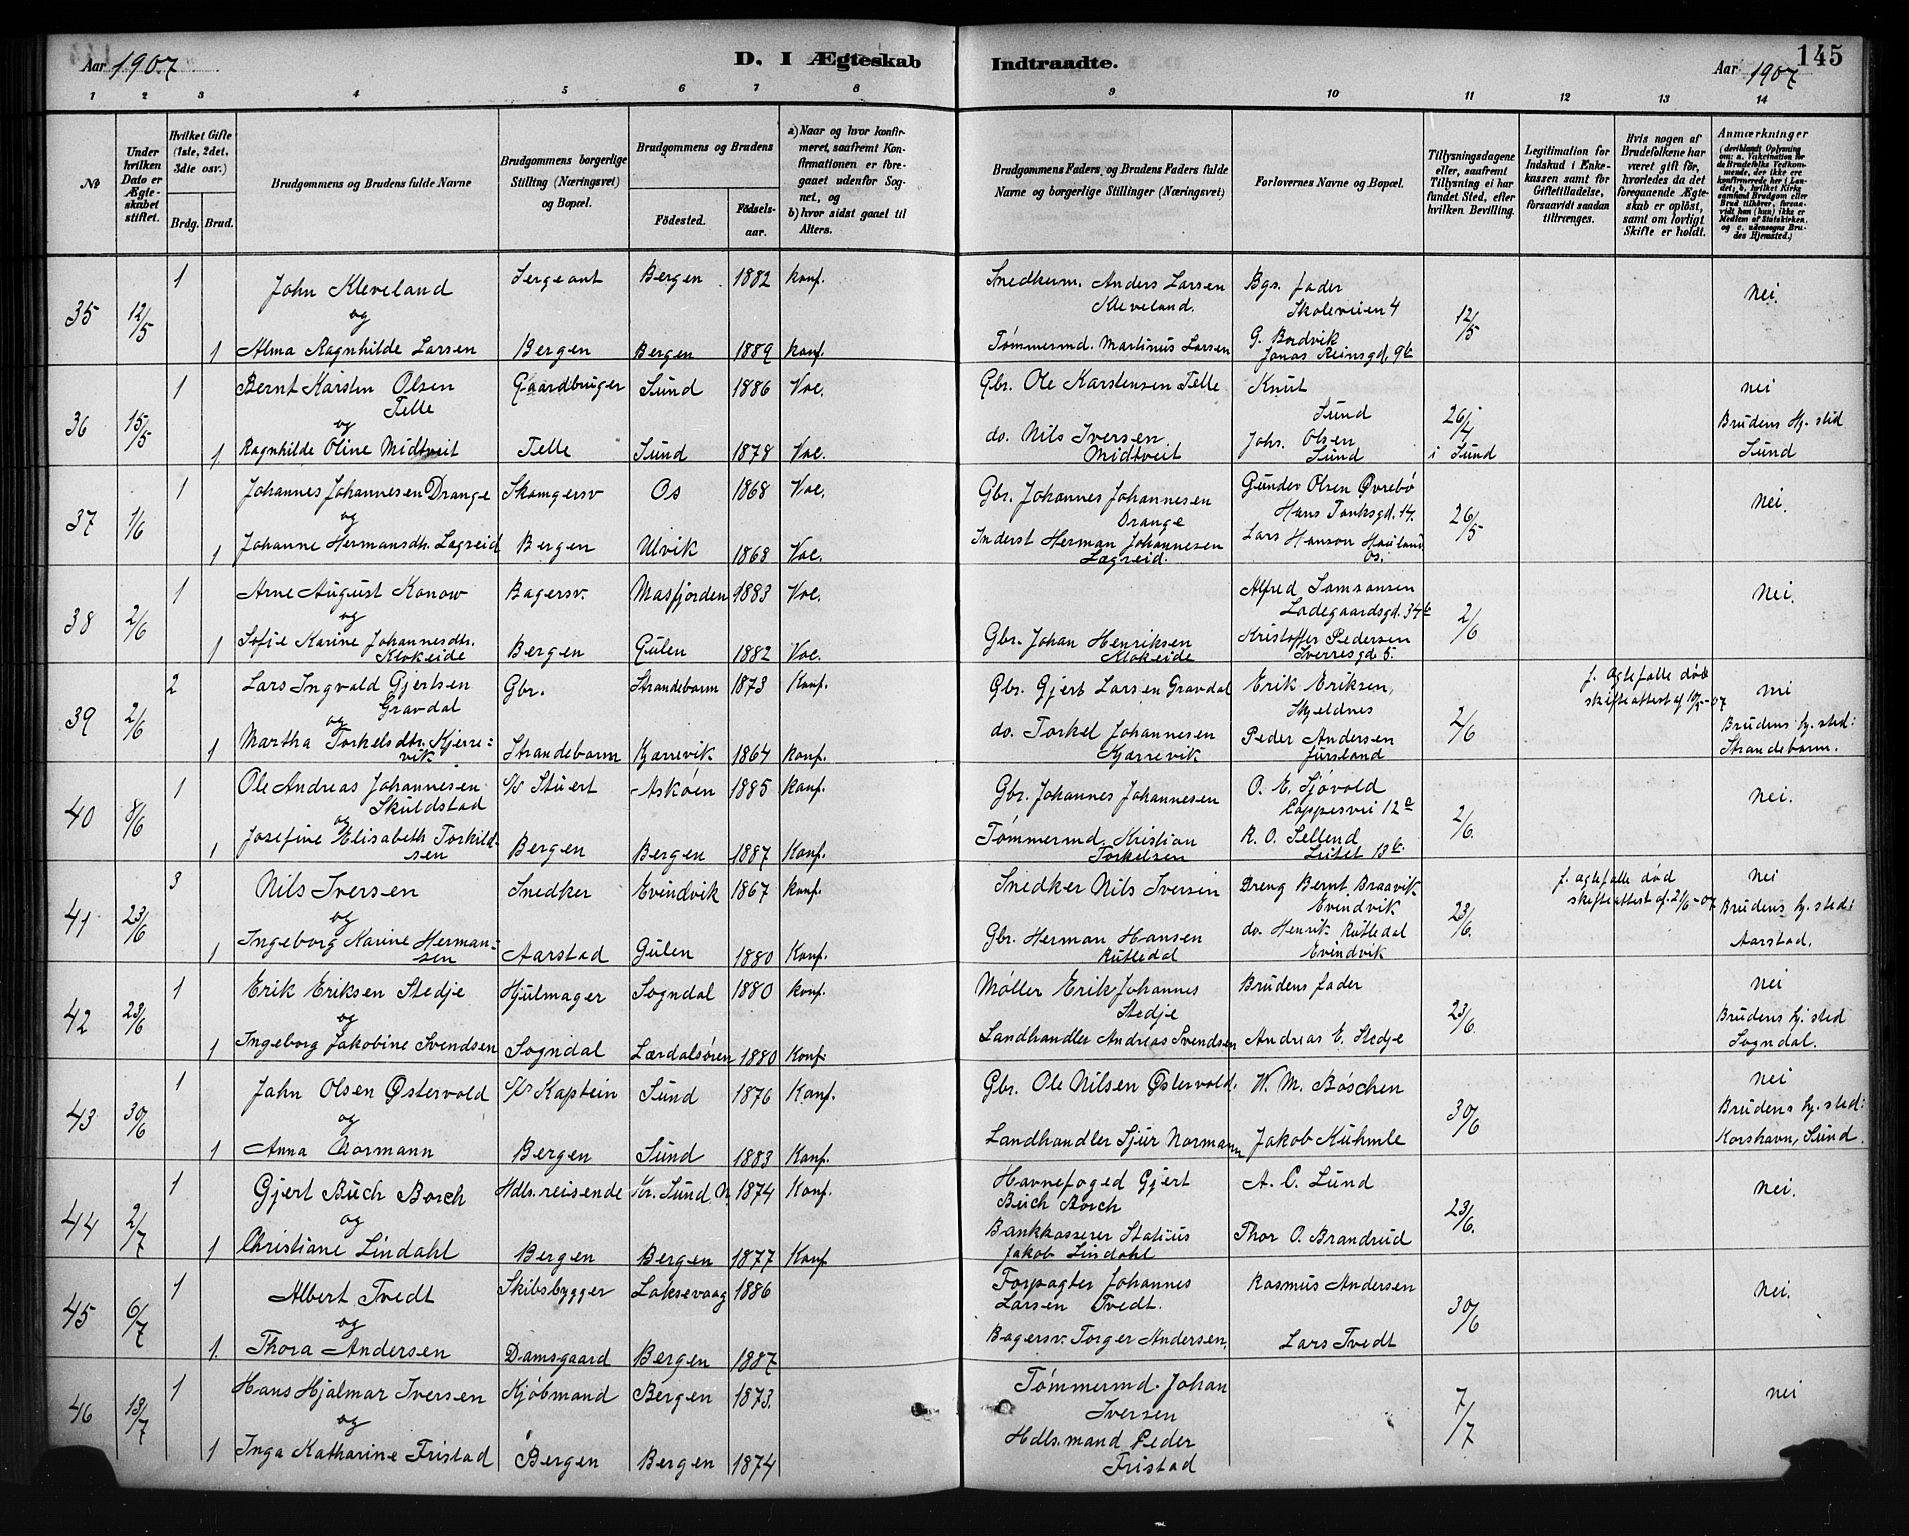 Aar 1907
D. I Ægteskab
Indtraadte.
Aar 1907
145
1 2 3 4 5 6 7 8 9 10 11 12 13 14
No
Under hvilken Dato er Ægteskabet stiftet.
Hvilket Gifte (1ste, 2det, 3die osv.)
Brdg. Brud.
Brudgommens og Brudens fulde Navne
Brudgommens borgerlige Stilling (Næringsvei) og Bopæl.
Brudgommens og Brudens
Fødested.
Fødselsaar.
a) Naar og hvor konfirmeret, saafremt Konfirmationen er foregaaet udenfor Sognet, og
b) hvor sidst gaaet til Alters.
Brudgommens Faders, og Brudens Faders fulde Navne og borgerlige Stillinger (Næringsvei)
Forlovernes Navne og Bopæl.
Tillysningsdagene eller, saafremt Tillysning ei har fundet Sted, efter hvilken Bevilling.
Legitimation for Indskud i Enkekassen samt for Giftetilladelse, forsaavidt saadan tiltrænges.
Hvis nogen af Brudefolkene har været gift før, hvorledes da det foregaaende Ægteskab er opløst, samt om lovligt Skifte er holdt.
Anmærkninger
35 12/5 1 John Kleveland Sergeant Bergen 1882 konf. Snedkerm. Anders Larsen Kleveland. Bgs. fader Skoleveien 4 12/5 Nei.
og
1 Alma Ragnhilde Larsen Bergen Bergen 1889 konf. Tømmermd. Martinus Larsen G. Bordvik Jonas Reinsgd. 9b
36 15/5 1 Bernt Karsten Olsen Telle Gaardbruger Sund 1886 Vac. Gbr. Ole Karstensen Telle Knut Sund 26/4 i Sund nei
og
1 Ragnhilde Oline Midtveit Telle Sund 1878 Vac. do. Nils Iversen Midtveit Johs. Olsen Sund Brudens Hj. sted Sund
37 1/6 1 Johannes Johannesen Drange Skomgersv Os 1868 Vac. Gbr. Johannes Johannesen Drange Gunder Olsen Øvrebø Hans Tanksgd. 14. 26/5 Nei.
og
1 Johanne Hermansdtr. Lægreid Bergen Ulvik 1868 Vac. Inderst Herman Johannesen Lægreid. Lars Hanson Hauland Os.
38 2/6 1 Arne August Konow Bagersv. Masfjorden 1883 Vac. Alfred Samsonsen Ladegaardsgd. 34b 2/6 Nei.
og
1 Sofie Karine Johannesdtr. Klokeide Bergen Gulen 1882 Vac. Gbr. Johan Henriksen Klokeide Kristoffer Pedersen Sverresgd 5.
39 2/6 2 Lars Ingvald Gjertsen Gravdal Gbr. Strandebarm 1873 Konf. Gbr. Gjert Larsen Gravdal Erik Eriksen, Skjeldnes 2/6 f. ægtefælle død skifteattest af 10/5-07 nei
og
1 Martha Torkelsdtr. Kjerrevik Strandebarm Kjærrevik 1864 konf. do. Torkel Johannesen Kjærrevik Peder Andersen Fursland Brudens hj. sted: Strandebarm.
40 8/6 1 Ole Andreas Johannesen Skuldstad S/S Stuert Askøen 1885 konf. Gbr. Johannes Johannesen O. E. Sjøvold Cappesvei 12a 2/6. Nei.
og
1 Josefine Elisabeth Torkildsen Bergen Bergen 1887 Konf. Tømmermd. Kristian Torkelsen R. O. Sellend 13b.
41 23/6 3 Nils Iversen Snedker Evindvik 1867 konf. Snedker Nils Iversen Dreng Bernt Braavik Evindvik 23/6. f. ægtefælle død skifteattest af 21/6-07 nei
og
1 Ingeborg Karine Hermansen Aarstad Gulen 1880 Konf. Gbr. Herman Hansen Rutledal do. Henrik Rutledal Evindvik Brudens hj. sted: Aarstad.
42 23/6 1 Erik Eriksen Stedje Hjulmager Sogndal 1880 konf. Møller Erik Johannes Stedje Brudens fader 23/6. nei
og
1 Ingeborg Jakobine Svendsen Sogndal Lærdalsøren 1880 Konf. Landhandler Andreas Svendsen Andreas E. Stedje Brudens hj. sted Sogndal.
43 30/6 1 John Olsen Østervold S/S Kaptein Sund 1876 Konf. Gbr. Ole Nilsen Østervold. W. M. Bøschen 30/6 nei
og
1 Anna Normann Bergen Sund 1883 Konf. Landhandler Sjur Normann Jakob Kuhmle Brudens hj. sted: Korshavn, Sund.
44 2/7 1 Gjert Buch Borch Hdls.reisende Kr. Sund N. 1874 Konf. Havnefoged Gjert Buch Borch A. C. Lund 23/6. Nei.
og
1 Christiane Lindahl Bergen Bergen 1877 Konf Bankkasserer Statius Jakob Lindahl Thor O. Brandrud
45 6/7 1 Albert Tvedt Skibsbygger Laksevaag 1886 Forpagter Johannes Larsen Tvedt. Rasmus Andersen 30/6 Nei.
og
1. Thora Andersen Damsgaard Bergen 1887 Bagersv. Torger Andersen, Lars Tvedt
46 13/7 1 Hans Hjalmar Iversen Kjøbmand Bergen 1873. Tømmermd. Johan Iversen 7/7 nei
og
1 Inga Katharine Fristad Bergen Bergen 1874 Hdls.mand Peder Fristad